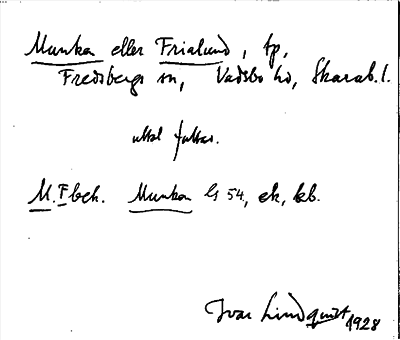 Munka eller Frialund, tp,
Fredsbergs sn, Vadsbo hd, Skarab. l.
uttal fattas.
M. F bek. Munkan ls 54, ek, kb.
Ivar Lindquist 1928